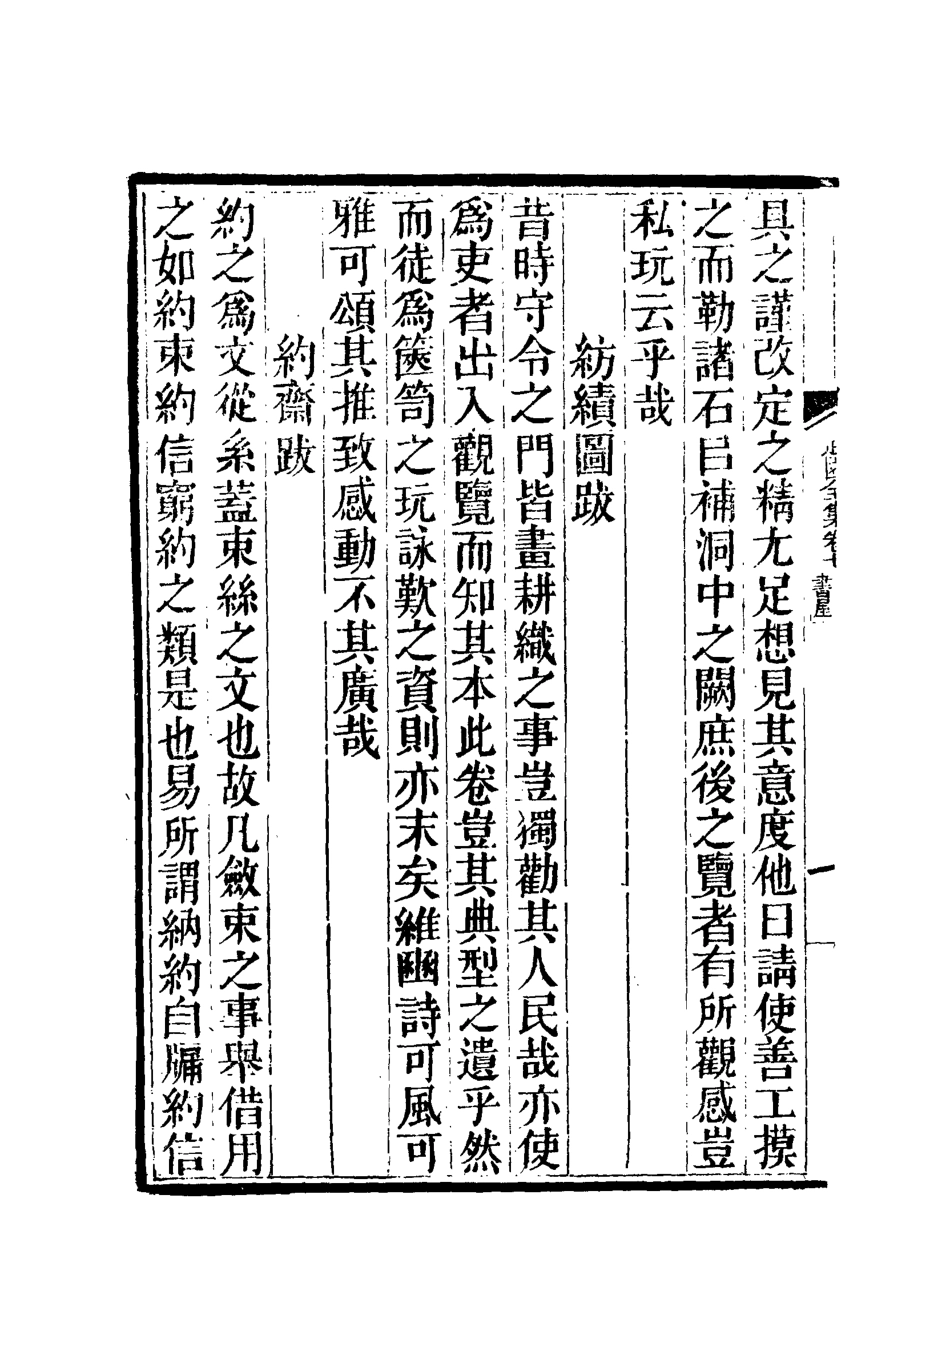 具之謹改定之精尤足想見其意度他日請使善工摸
之而勒諸石㠯補洞中之闕庶後之覽者有所觀感豈
私玩云乎哉
紡績圖跋
昔時守令之門皆畫耕織之事豈獨勸其人民哉亦使
爲吏者出入觀覽而知其本此卷豈其典型之遺乎然
而徒爲篋笥之玩詠歎之資則亦末矣維豳詩可風可
雅可頌其推致感動不其廣哉
約齋跋
約之爲文從糸蓋束絲之文也故凡斂束之事舉借用
之如約束約信窮約之類是也易所謂納約自牖約信
全集卷七 書屋